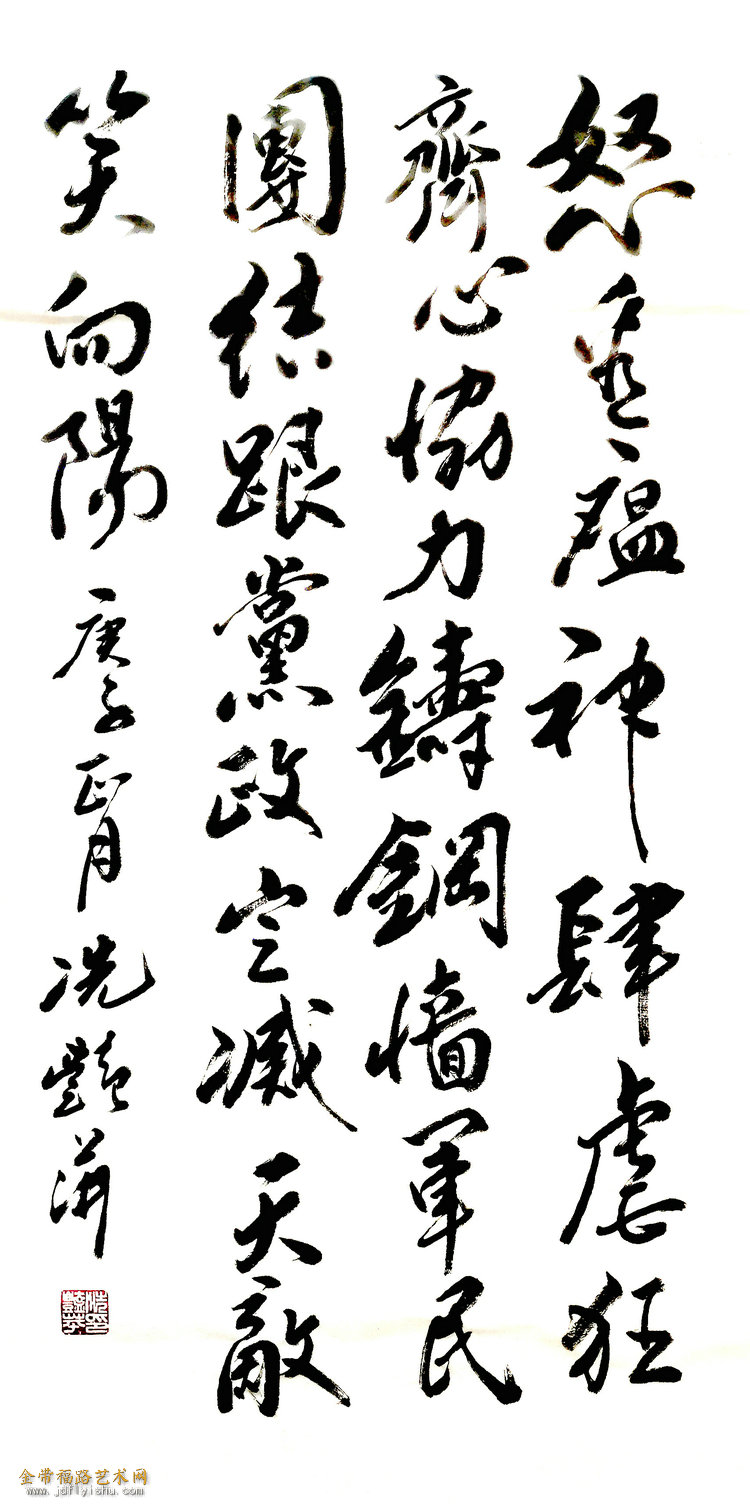 怒瘟神肆虐狂
齊心協力鑄鋼墻軍民
團結跟黨政定滅天敵
笑向陽 庚子正月 冼艷萍
金带福路艺术网
www.jdflyishu.com